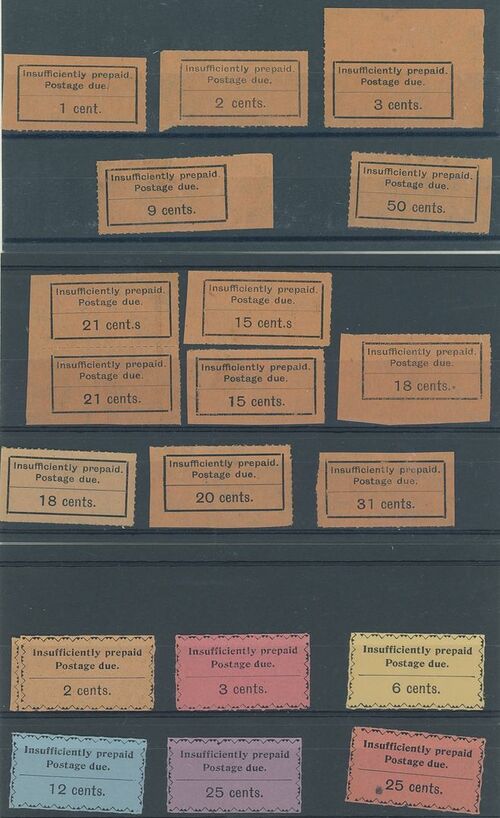 Insufficiently prepaid.
Postage due.
1 cent.
Insufficiently prepaid.
Postage due.
2 cents.
Insufficiently prepaid.
Postage due.
3 cents.
Insufficiently prepaid.
Postage due.
9 cents.
Insufficiently prepaid.
Postage due.
50 cents.
Insufficiently prepaid.
Postage due.
21 cent.s
Insufficiently prepaid.
Postage due.
15 cent.s
Insufficiently prepaid.
Postage due.
21 cents.
Insufficiently prepaid.
Postage due.
15 cents.
Insufficiently prepaid.
Postage due.
18 cents.
Insufficiently prepaid.
Postage due.
18 cents.
Insufficiently prepaid.
Postage due.
20 cents.
Insufficiently prepaid.
Postage due.
31 cents.
Insufficiently prepaid
Postage due.
2 cents.
Insufficiently prepaid
Postage due.
3 cents.
Insufficiently prepaid
Postage due.
6 cents.
Insufficiently prepaid
Postage due.
12 cents.
Insufficiently prepaid
Postage due.
25 cents.
Insufficiently prepaid
Postage due.
25 cents.